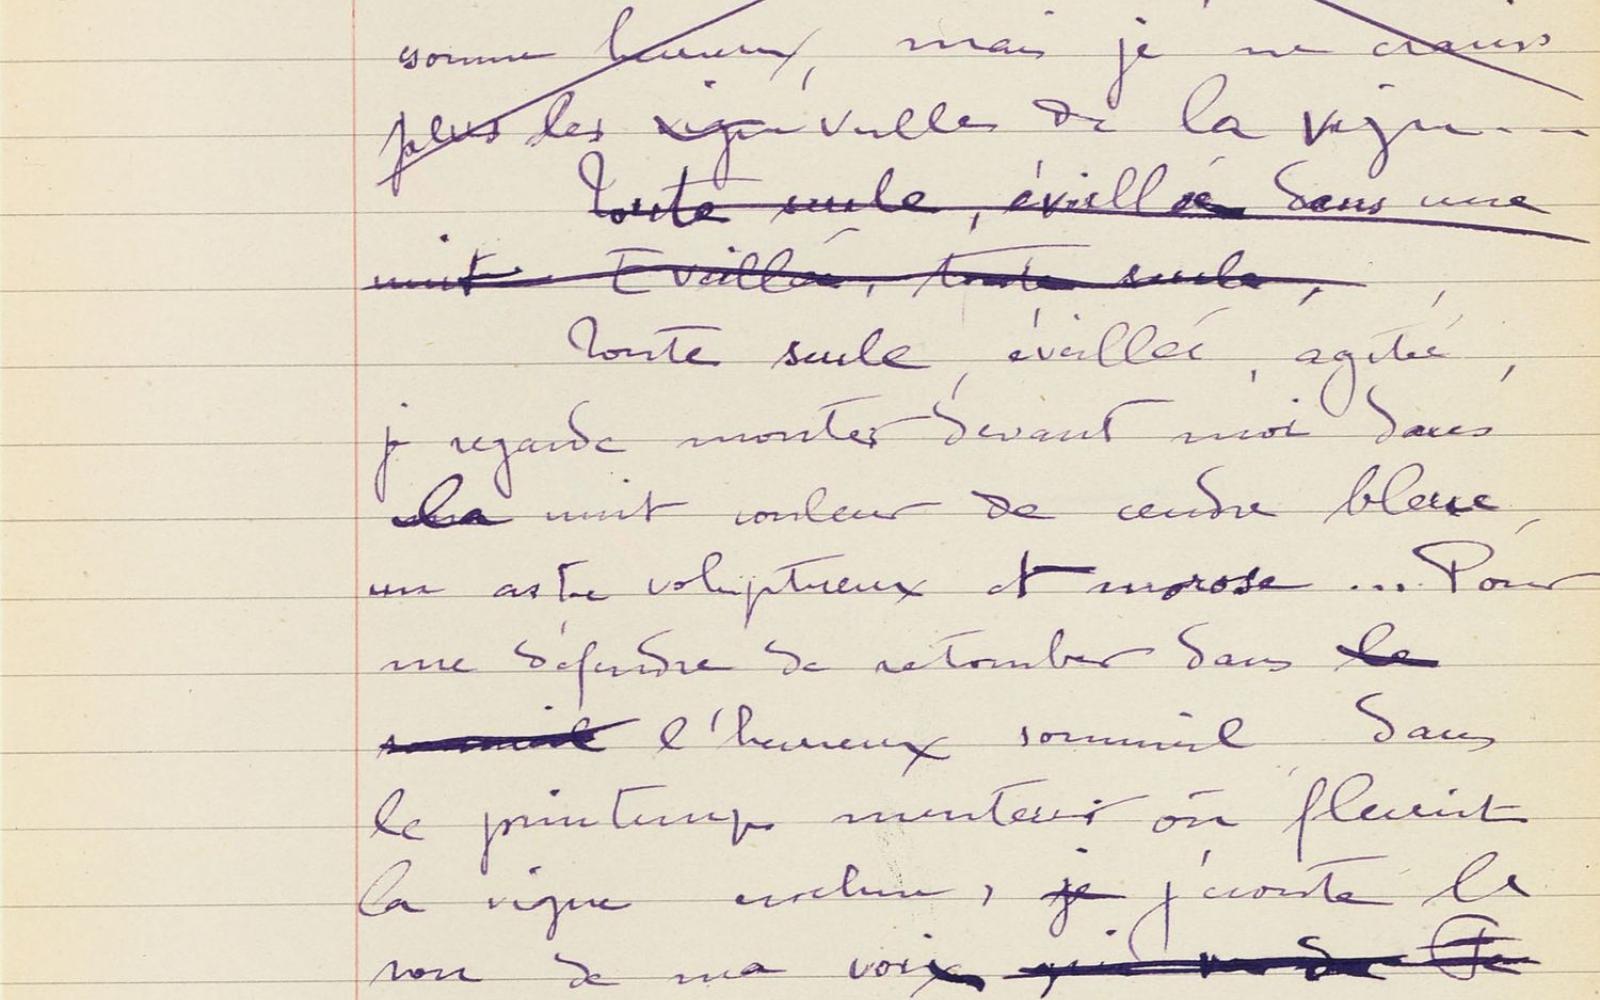 somme heureux, mais je ne crains
plus les vrilles de la vigne...
Toute seule, éveillée dans une
nuit Eveillée, toute seule,
Toute seule, éveillée, agitée,
je regarde monter devant moi dans
la nuit couleur de cendre bleue,
un astre voluptueux et morose... Pour
me défendre de retomber dans le
sommeil l'heureux sommeil, dans
le printemps menteur où fleurit
la vigne crochue, je j'écoute le
son de ma voix